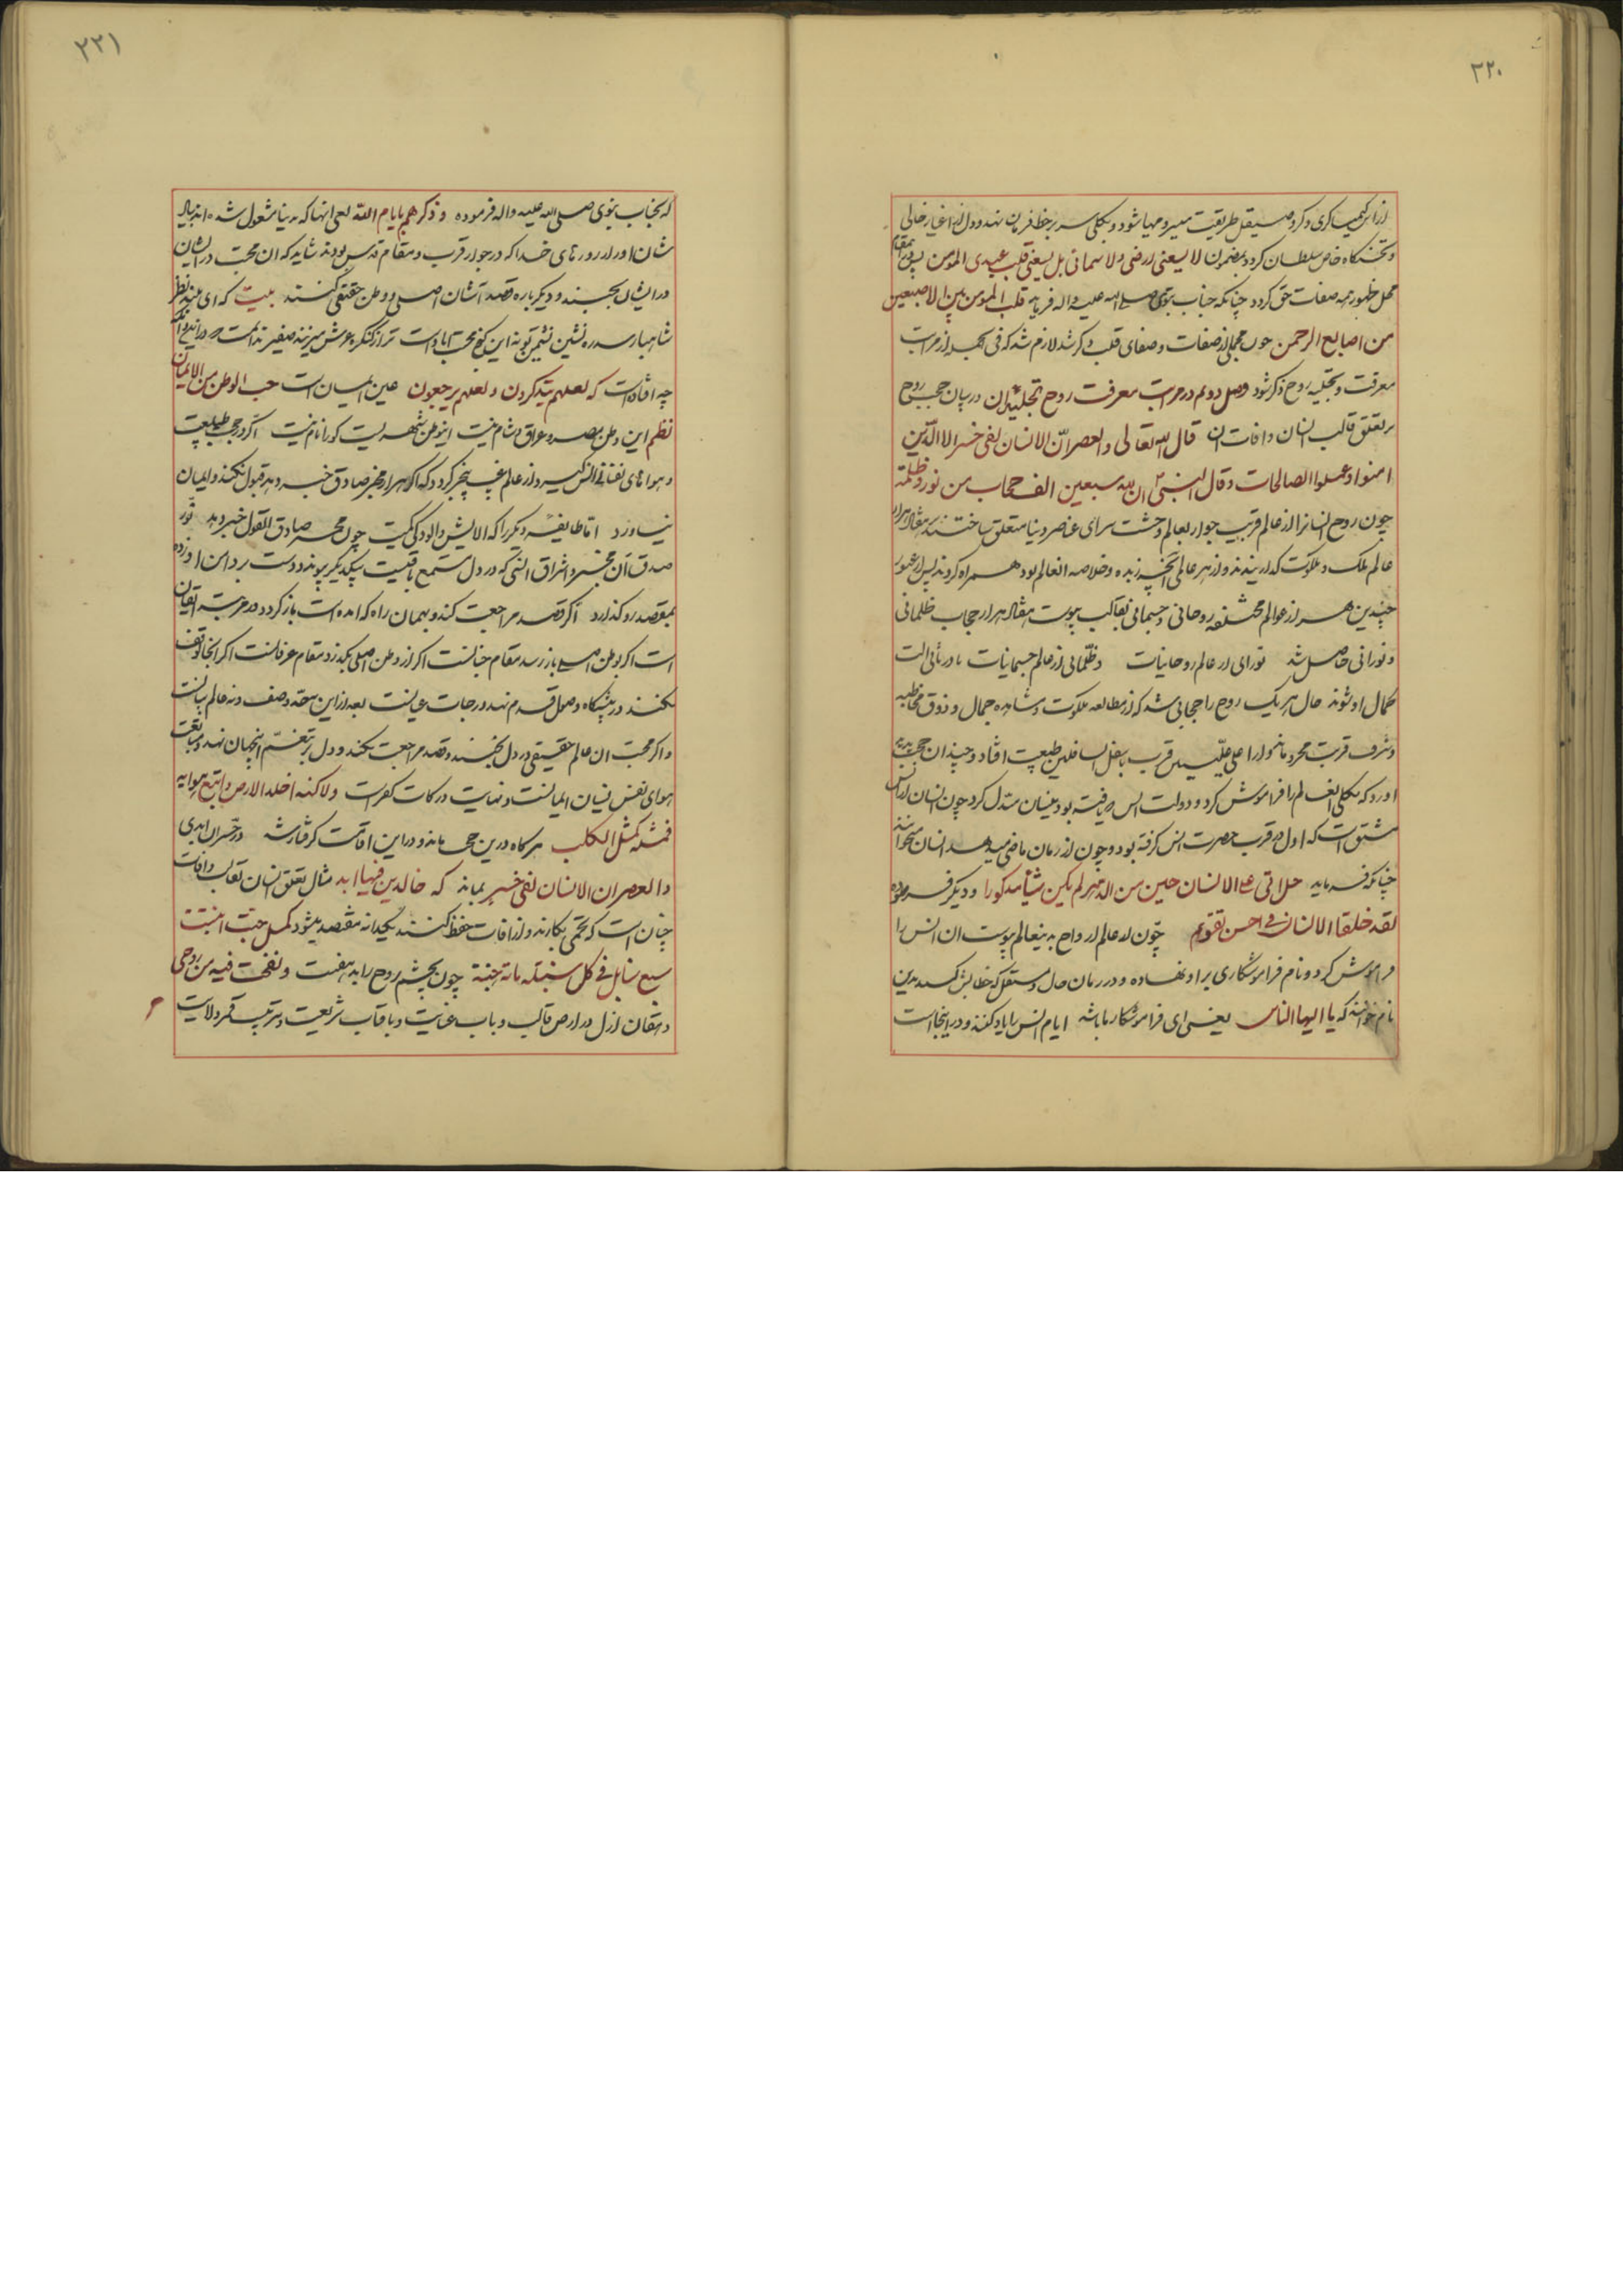 ۲۲۰
از اثر کیمیاگری ذکر و صیقل طریقت میسر و مهیا شود و بکلی سر بر خط فرمان نهد و دل از اغیار خالی
و تختگاه خاص سلطان گردد بمضمون لا یسعنی ارضی و لا سمائی بل یسعنی قلب عبدی المومن
محل ظهور همه صفات حق گردد چنانکه جناب نبوی صلی الله علیه و اله فرماید قلب المومن بین الاصبعین
من اصابع الرحمن چون مجملی از صفات و صفای قلب ذکر شد لازم شد که فی الجمله از مراتب
معرفت و تجلیه روح ذکر شود وصل دویم در مراتب معرفت روح و تجلیه آن در بیان حجب روح
بر تعلق قالب انسان و افات ان قال الله تعالی والعصر انّ الانسان لفی خسر الا الّذین
امنوا و عملوا الصالحات و قال النبی ان لله سبعین الف حجاب من نور و ظلمة
چون روح انسانرا از عالم قرب جوار بعالم وحشت سرای عناصر دنیا متعلق ساختند
عالم ملک و ملکوت گذرانیدند و از هر عالمی آنچه زبده و خلاصه انعالم بود همراه کردند پس از عبور
چندین هزار عوالم مختلفه روحانی و جسمانی بقالب پیوست هفتاد هزار حجاب ظلمانی
و نورانی حاصل شد نورای از عالم روحانیات و ظلمانی از عالم جسمانیات
کمال او شوند حال هر یک روح را حجابی شد که از مطالعه ملکوت و مشاهده جمال و ذوق مخاطبه
و شرف قربت محروم ماند و از اعلی علیین قرب باسفل السافلین طبیعت افتاد و چندان حجب پدید
اورد که بکلی انعالم را فراموش کرد و دولت انس که یافته بود بنسیان مبدل کرد چون انسان از انس
مشتق است که اول در قرب حضرت انس گرفته بود و چون از زمان ماضی میدهد انسان میخواند
چنانکه فرماید هل اتی علی الانسان حین من الدهر لم یکن شیئا مذکورا و دیگر فرموده
لقد خلقنا الانسان فی احسن تقویم چون از عالم ارواح بدینعالم پیوست ان انس را
فراموش کرد و نام فراموشکاری بر او نهاده و در زمان حال و مستقبل که خطابش کند بدین
نام خوانند که یا ایها الناس یعنی ای فراموشکار ما باشد ایام انس را یاد کنند و در اینجا است
۲۲۱
که بجناب نبوی صلی الله علیه و اله فرموده و ذکرهم بایام الله یعنی انها که بدنیا مشغول شده اند بیاد
شان اور از روزهای خدا که در جوار قرب و مقام قدس بودند شاید که ان محبت در ایشان
در ایشان بجنبد و دیگر باره قصد آشیان اصلی و وطن حقیقی کنند بیت که ای بلند نظر
شاهباز سدره نشین نشیمن تو نه این کنج محنت اباد است ترا ز کنگره عرش میزنند صفیر ندانمت که در این دامگه
چه افتاده است که لعلهم یتذکرون و لعلهم یرجعون عین ایمان است حب الوطن من الایمان
نظم این وطن مصر و عراق و شام نیست اینوطن شهریست کورا نام نیست اگر در حجب طبیعت
و هواهای نفسانی انس گیرد و از عالم غیب بیخبر گردد که اگر هزار مخبر صادق خبر دهد قبول نکند و ایمان
نیاورد اما طایفه دیگر را که الایش و الودگی کمست چون مخبر صادق القول خبر دهد نور
صدق آن مخبر و اشراق انسی که در دل مستمع باقیست بیکدیگر پیوندد دست
بمقصد رو گذارد اگر قصد مراجعت کند و بهمان راه که امده است باز گردد در مرتبه ایقان
است اگر بوطن اصلی باز رسد مقام جنانست اگر از وطن اصلی بگذرد مقام عرفانست اگر انجا توقف
نکنند در پیشگاه وصول قدم نهد درجات عیانست بعد از این نه حد وصف و نه عالم بیانست
و اگر محبت ان عالم حقیقی در دل نجنبد و قصد مراجعت نکند و دل بر تنعم اینجهان نهد و متابعت
هوای نفس نسیان ایمانست و نهایت درکات کفر است ولاکنه اخلد الارض و اتبع هوایه
فمثله کمثل الکلب هرگاه درین حجب ماند و در این افات گرفتار شد در خسران ابدی
والعصر ان الانسان لفی خسر بماند که خالدین فیها ابد مثال تعلق انسان بقالب و افات
چنان است که تخمی بکارند و از افات حفظ کنند یکیدانه هفتصد میشود کمثل حبة انبتت
سبع سنابل فی کل سنبلة مائة حبة چون بچشم روح را بدهفت و نفخت فیه من روحی
دهقان ازل در ارض قالب و باب عنایت و بافتاب شریعت و تربیت قمر ولایت